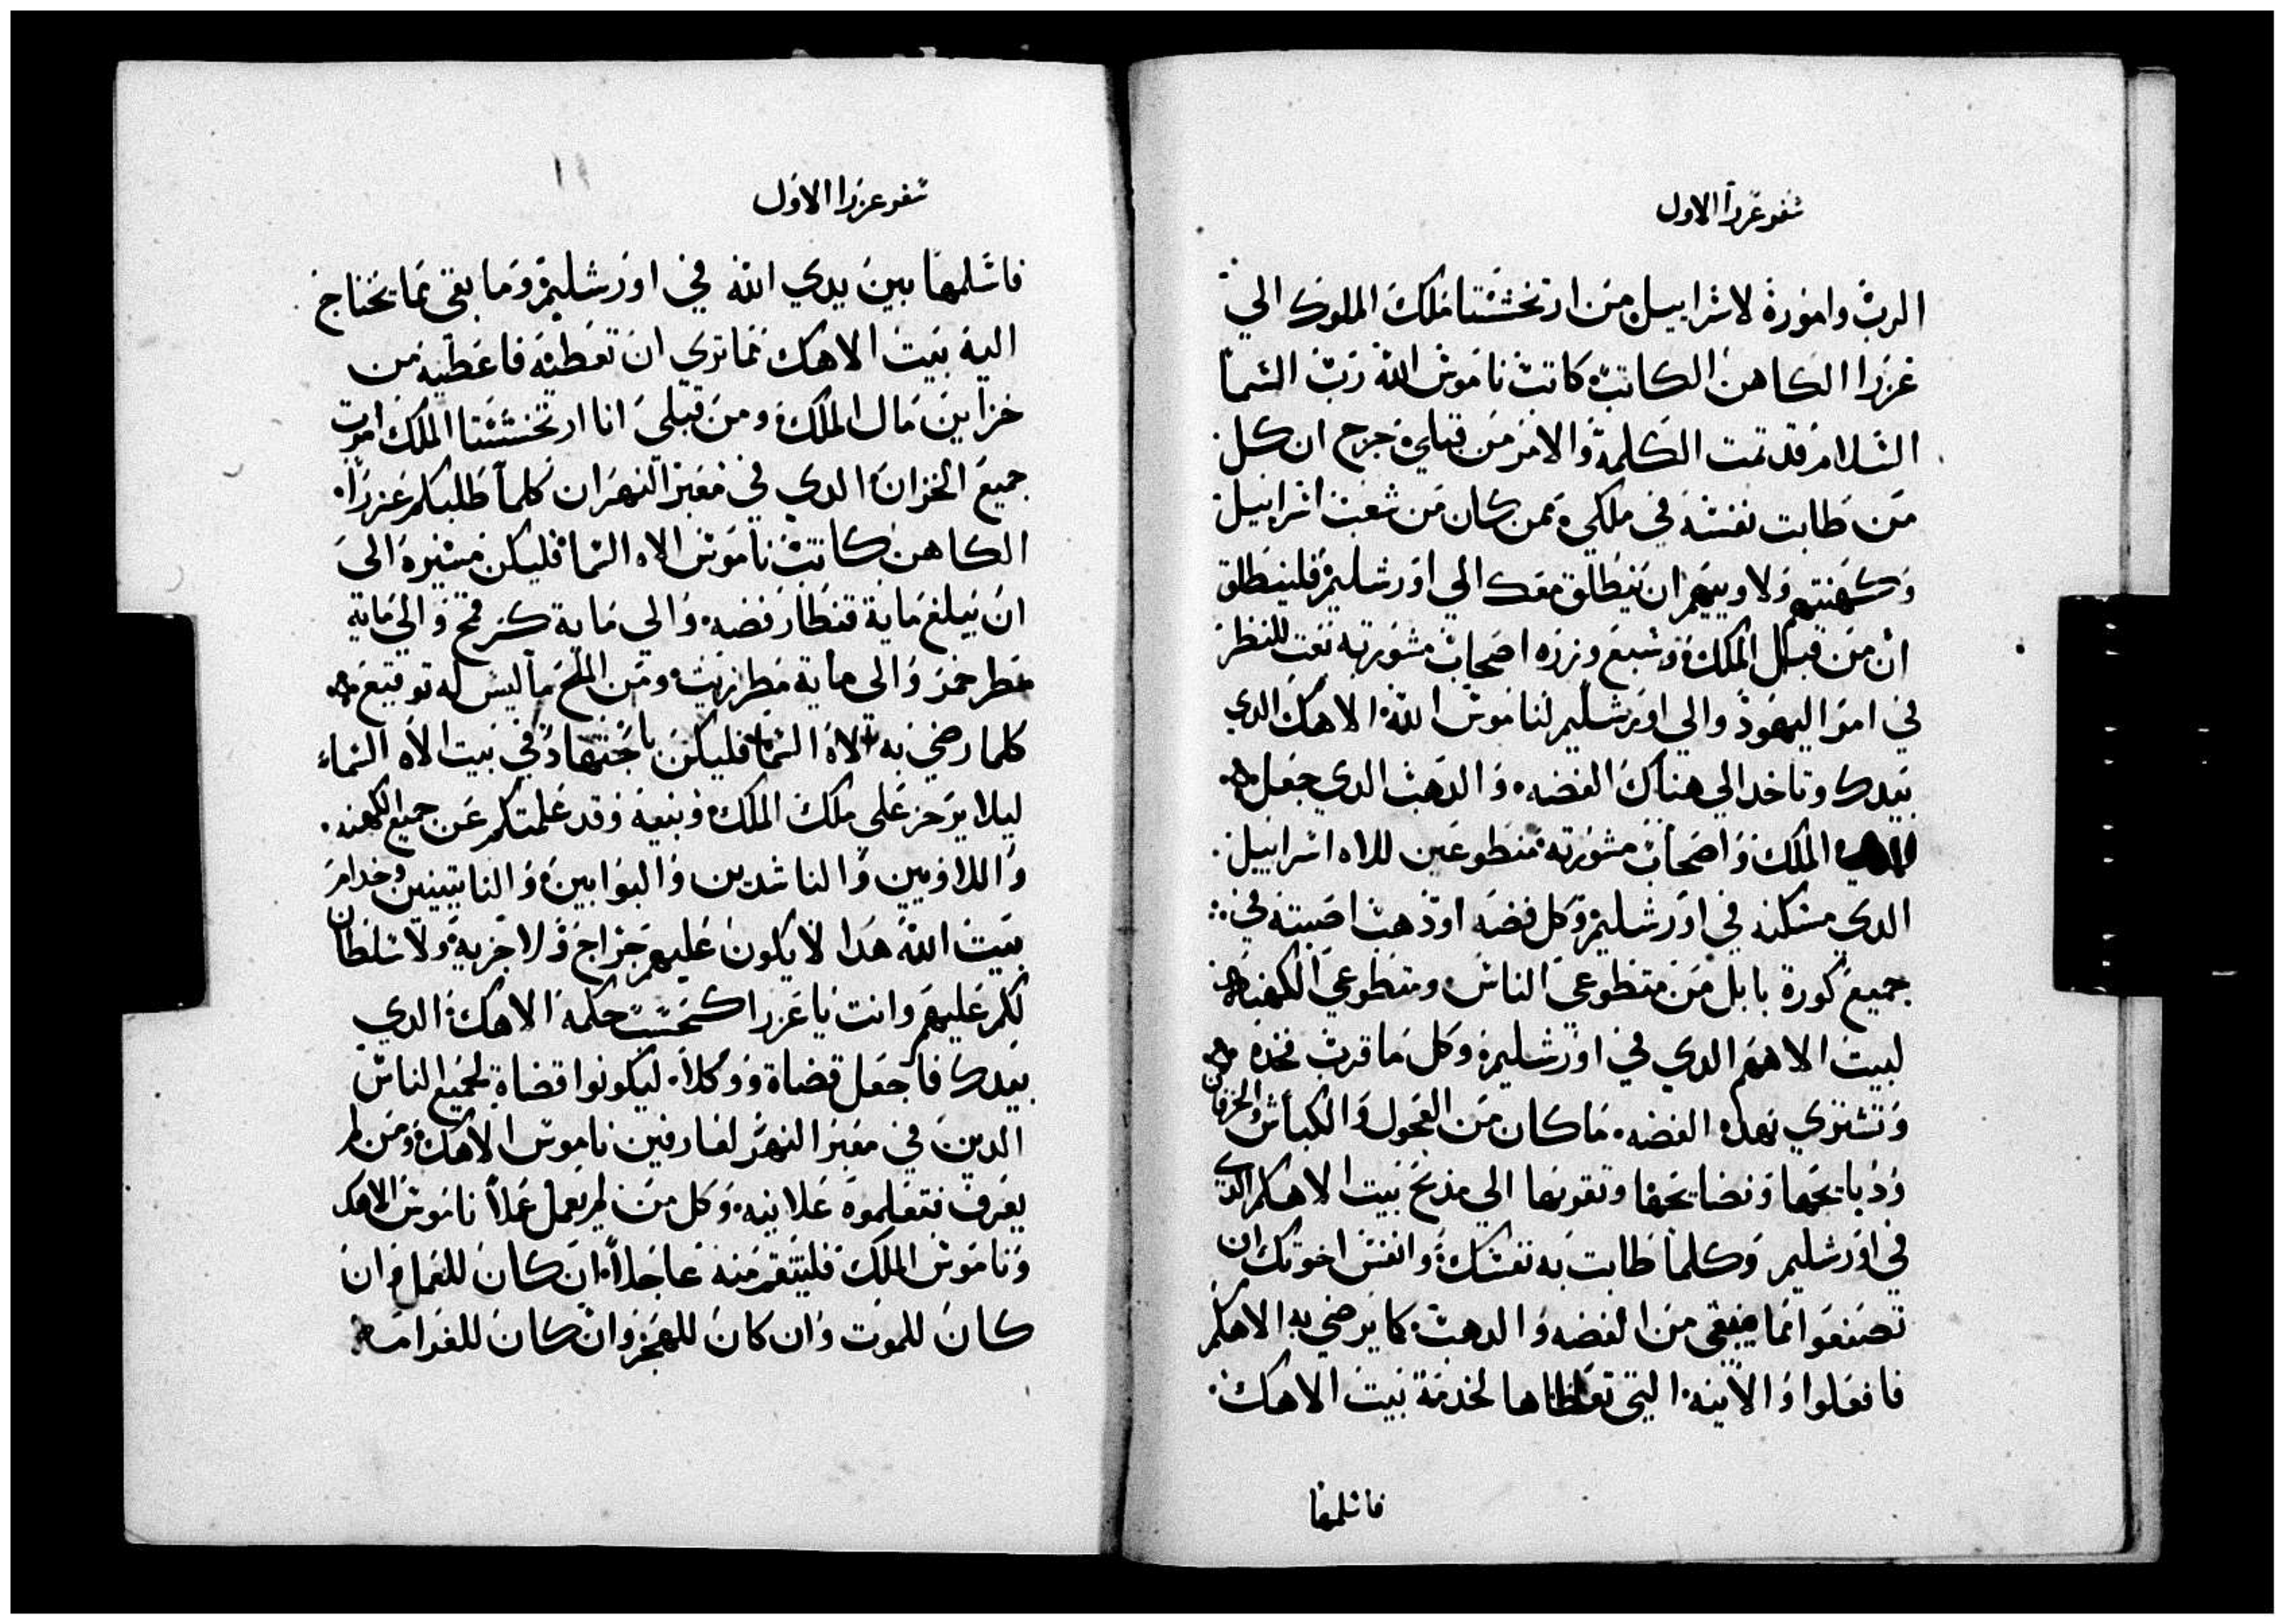 سفر عزرا الاول
الرب واموره لاسراييل من ارتخشستا ملك الملوك الي
عزرا الكاهن الكاتب كاتب ناموس الله رب السما
السلام قد تمت الكلمة والامر من قبلي خرج ان كل
من طابت نفسه في ملكي ممن كان من شعب اسراييل
وكهنتهم ولاوييهم ان ينطلق معك الي اورشليم فلينطلق
ان من قبل الملك وسبع وزره اصحاب مشورته بعت للنظر
في امر اليهود والي اورشليم لناموس الله الاهك الدي
بيدك وتاخد الي هناك الفضه والدهب الدي جعل
الملك واصحاب مشورته منطوعين للاه اسراييل
الدي مسكنه في اورشليم وكل فضه او دهب اصبته في
جميع كورة بابل من متطوعي الناس ومتطوعي الكهنه
لبيت الاههم الدي في اورشليم وكل ما قرب فخده
وتشتري بهده الفضه ما كان من العجول والكباش والخرفان
ودبايحها ونضايحها وتقربها الي مدبح بيت الاهكم الدي
في اورشليم وكلما طابت به نفسك وانفس اخوتك ان
تصنعوا مما يبقي من الفضه والدهب كما يرضي به الاهكم
فافعلوا والانيه التي تعطاها لخدمة بيت الاهك
فاسلمها
سفر عزرا الاول
فاسلمها بين يدي الله في اورشليم وما بقي مما يحتاج
اليه بيت الاهك مما تري ان تعطيه فاعطيه من
خزاين مال الملك ومن قبلي انا ارتخشستا الملك امرت
جميع الخزان الدي في معبر النهر ان كلما طلبكم عزرا
الكاهن كاتب ناموس الاه السما فليكن ميسره الي
ان يبلغ ماية قنطار فضه والي ماية كر قمح والي ماية
مطر خمر والي ماية مطر زيت ومن الملح ما ليس له توقيع
كلما رضي به الاه السما فليكن باجتهاد في بيت الاه السماء
ليلا يوخز علي ملك الملك وبنيه وقد علمتكم عن جميع الكهنه
واللاويين والناشدين والبوابين والناتينين وخدام
بيت الله هدا لا يكون عليهم خراج ولا جزية ولا سلطان
لكم عليهم وانت يا عزرا كحسب حكمة الاهك الدي
بيدك فاجعل قضاة ووكلا ليكونوا قضاة لجميع الناس
الدين في معبر النهر لعارفين ناموس الاهك ومن لم
يعرف فتعلموه علانيه وكل من لم يعمل عملا ناموس الاهك
وناموس الملك فلينتقم منه عاجلا ان كان للعمل وان
كان للموت وان كان للهجر وان كان للغرامه